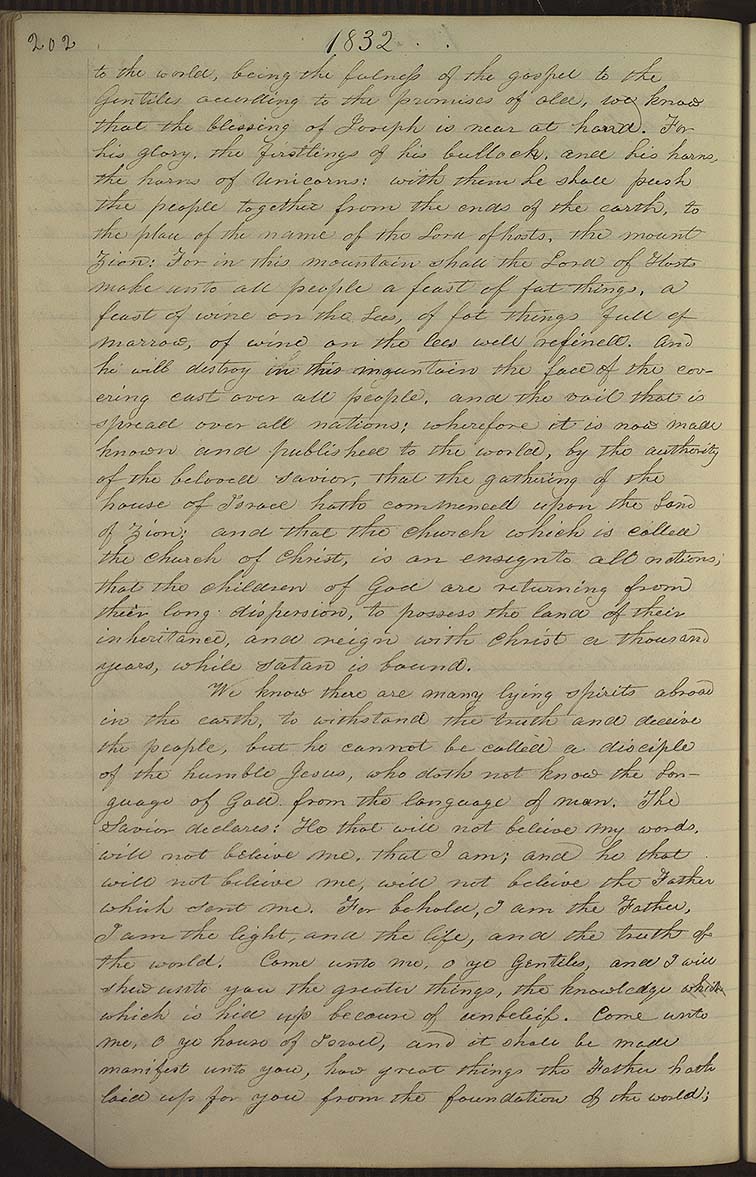 202 1832 . .
to the world, being the fulness of the gospel to the
Gentiles according to the promises of old, we know
that the blessing of Joseph is near at hand. For
his glory. the firstlings of his bullock, and his horns,
the horns of Unicorns: with them he shall push
the people together from the ends of the earth, to
the place of the name of the Lord of hosts, the mount
Zion: For in this mountain shall the Lord of Hosts
make unto all people a feast of fat things, a
feast of wine on the Lees, of fat things full of
marrow, of wine on the lees well refined. and
he will destroy in this mountain the face of the cov-
ering cast over all people, and the vail that is
spread over all nations; wherefore it is now made
known and published to the world, by the authority
of the beloved Savior, that the gathering of the
house of Israel hath commenced upon the Land
of Zion; and that the church which is called
the church of Christ, is an ensign to all nations;
that the children of God are returning from
their long dispersion, to possess the land of their
inheritance, and reign with Christ a thousand
years, while satan is bound.
We know there are many lying spirits abroad
in the earth, to withstand the truth and deceive
the people, but he cannot be called a disciple
of the humble Jesus, who doth not know the lan-
guage of God from the language of man. The
Savior declares: He that will not beleive my words,
will not beleive me, that I am; and he that
will not beleive me, will not beleive the Father
which sent me. For behold, I am the Father,
I am the light, and the life, and the truth of
the world. Come unto me, O ye Gentiles, and I will
shew unto you the greater things, the knowledge which
which is hid up because of unbeleif. Come unto
me, O ye house of Israel, and it shall be made
manifest unto you, how great things the Father hath
laid up for you from the foundation of the world;